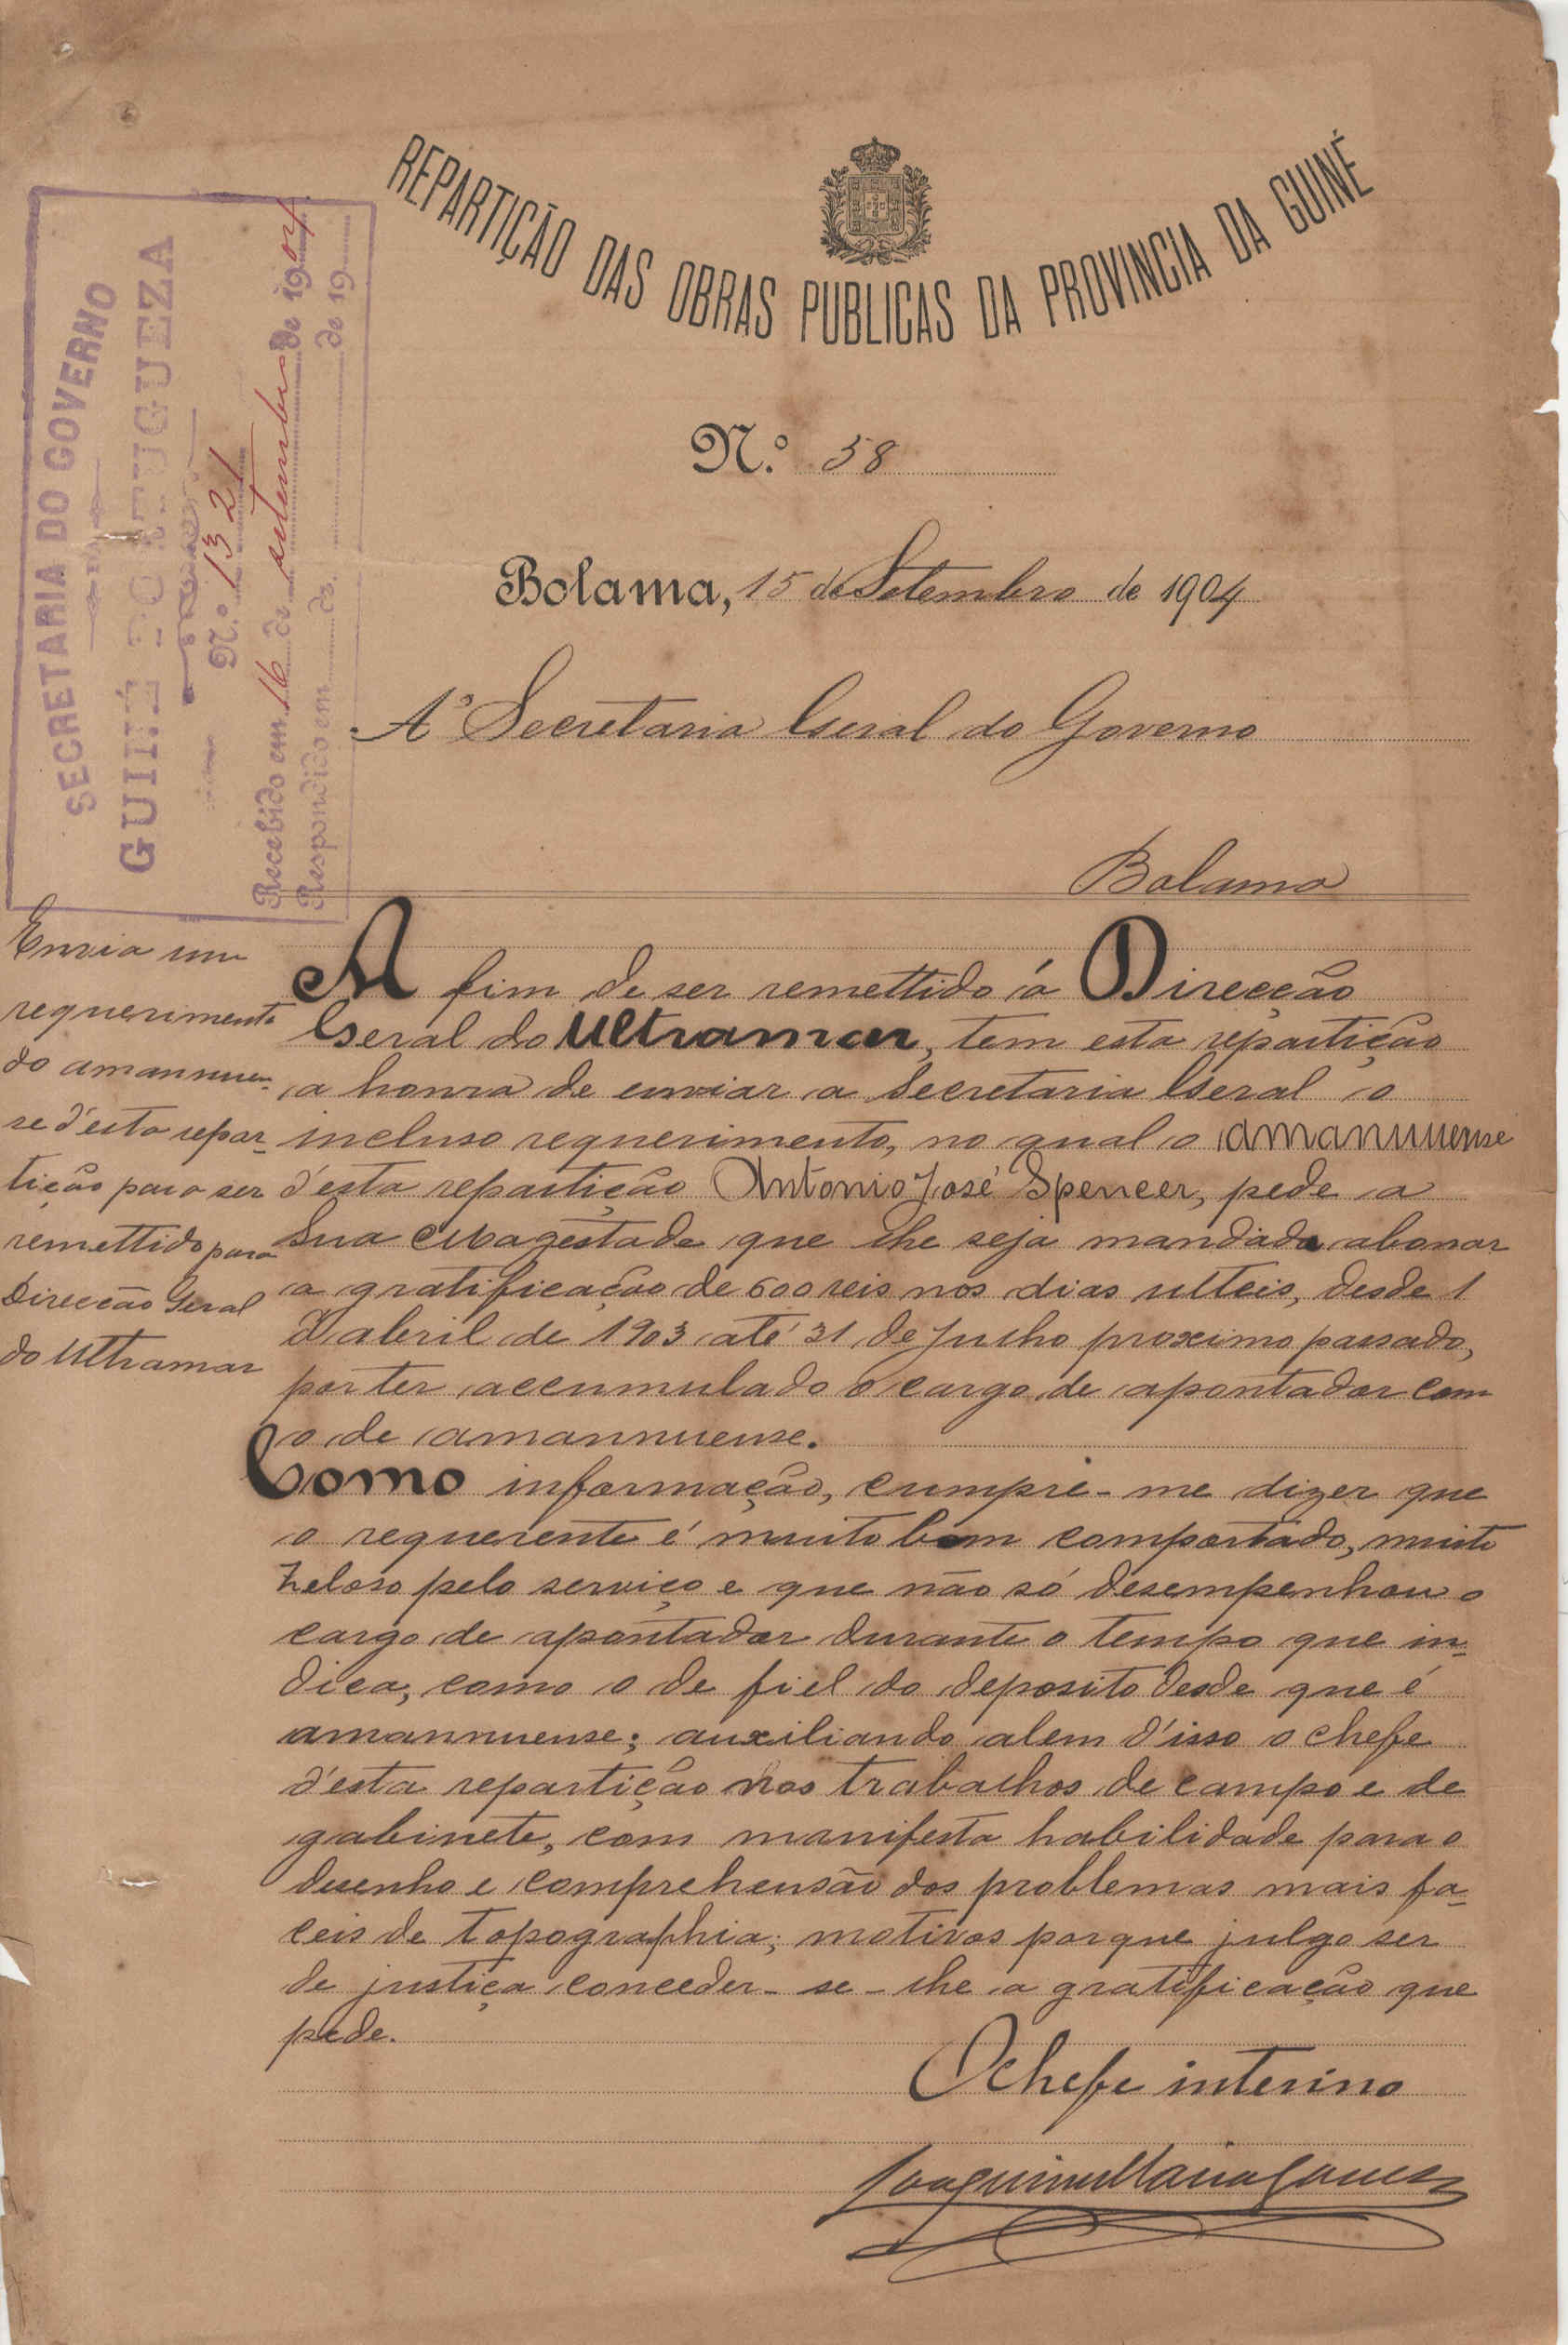 REPARTIÇÃO DAS OBRAS PUBLICAS DA PROVINCIA DA GUINÉ
SECRETARIA DO GOVERNO
GUINÉ PORTUGUEZA
N.º 1321
Recebido em 16 de setembro de 1904
Respondido em de de 19
N.º 58
Bolama, 15 de Setembro de 1904
Á Secretaria Geral do Governo
Bolama
Envia um
requerimento
do amannuen-
se d'esta repar-
tição para ser
remettido para
Direcção Geral
do Ultramar
A fim de ser remettido á Direcção
Geral do Ultramar, tem esta repartição
a honra de enviar a Secretaria Geral o
incluso requerimento, no qual o amanuuense
d'esta repartição Antonio José Spencer, pede a
Sua Magestade que lhe seja mandada abonar
a gratificação de 600 reis nos dias ulteis, desde 1
d'abril de 1903 até 31 de Julho proximo passado,
por ter accumulado o cargo de apontador com
o de amannuense.
Como informação, cumpre-me dizer que
o requerente é muito bem comportado, muito
zeloso pelo serviço e que não só desempenhou o
cargo de apontador durante o tempo que in-
dica, como o de fiel do deposito desde que é
amannuense; auxiliando alem d'isso o chefe
d'esta repartição nos trabalhos de campo e de
gabinete, com manifesta habilidade para o
desenho e comprehensão dos problemas mais fa-
ceis de topographia; motivos porque julgo ser
de justiça conceder-se-lhe a gratificação que
pede.
O chefe interino
Joaquim Maria